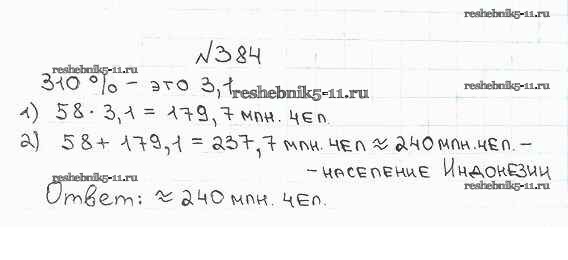 reshebnik5-11.ru
№384
reshebnik5-11.ru
310 % – это 3,1
reshebnik5-11.ru
reshebnik5-11.ru
1) 58 · 3,1 = 179,7 млн. чел.
2) 58 + 179,1 = 237,7 млн. чел ≈ 240 млн. чел. –
– население Индонезии
reshebnik5-11.ru
reshebnik5-11.ru
Ответ: ≈ 240 млн. чел.